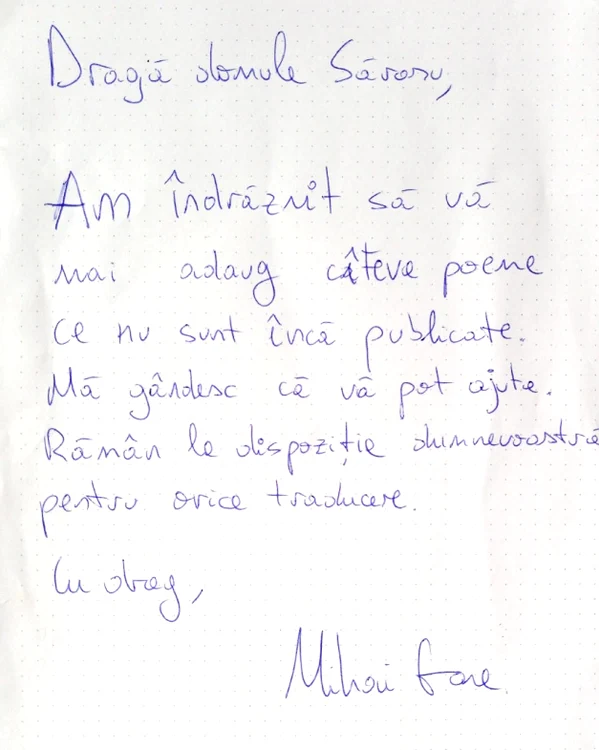 Dragă domule Săvosu,
Am îndrăznit să vă
mai adaug câteva poeme
ce nu sunt încă publicate.
Mă gândesc că vă pot ajuta.
Rămân la dispoziție dumnevoastră
pentru orice traducere.
Cu drag,
Mihai